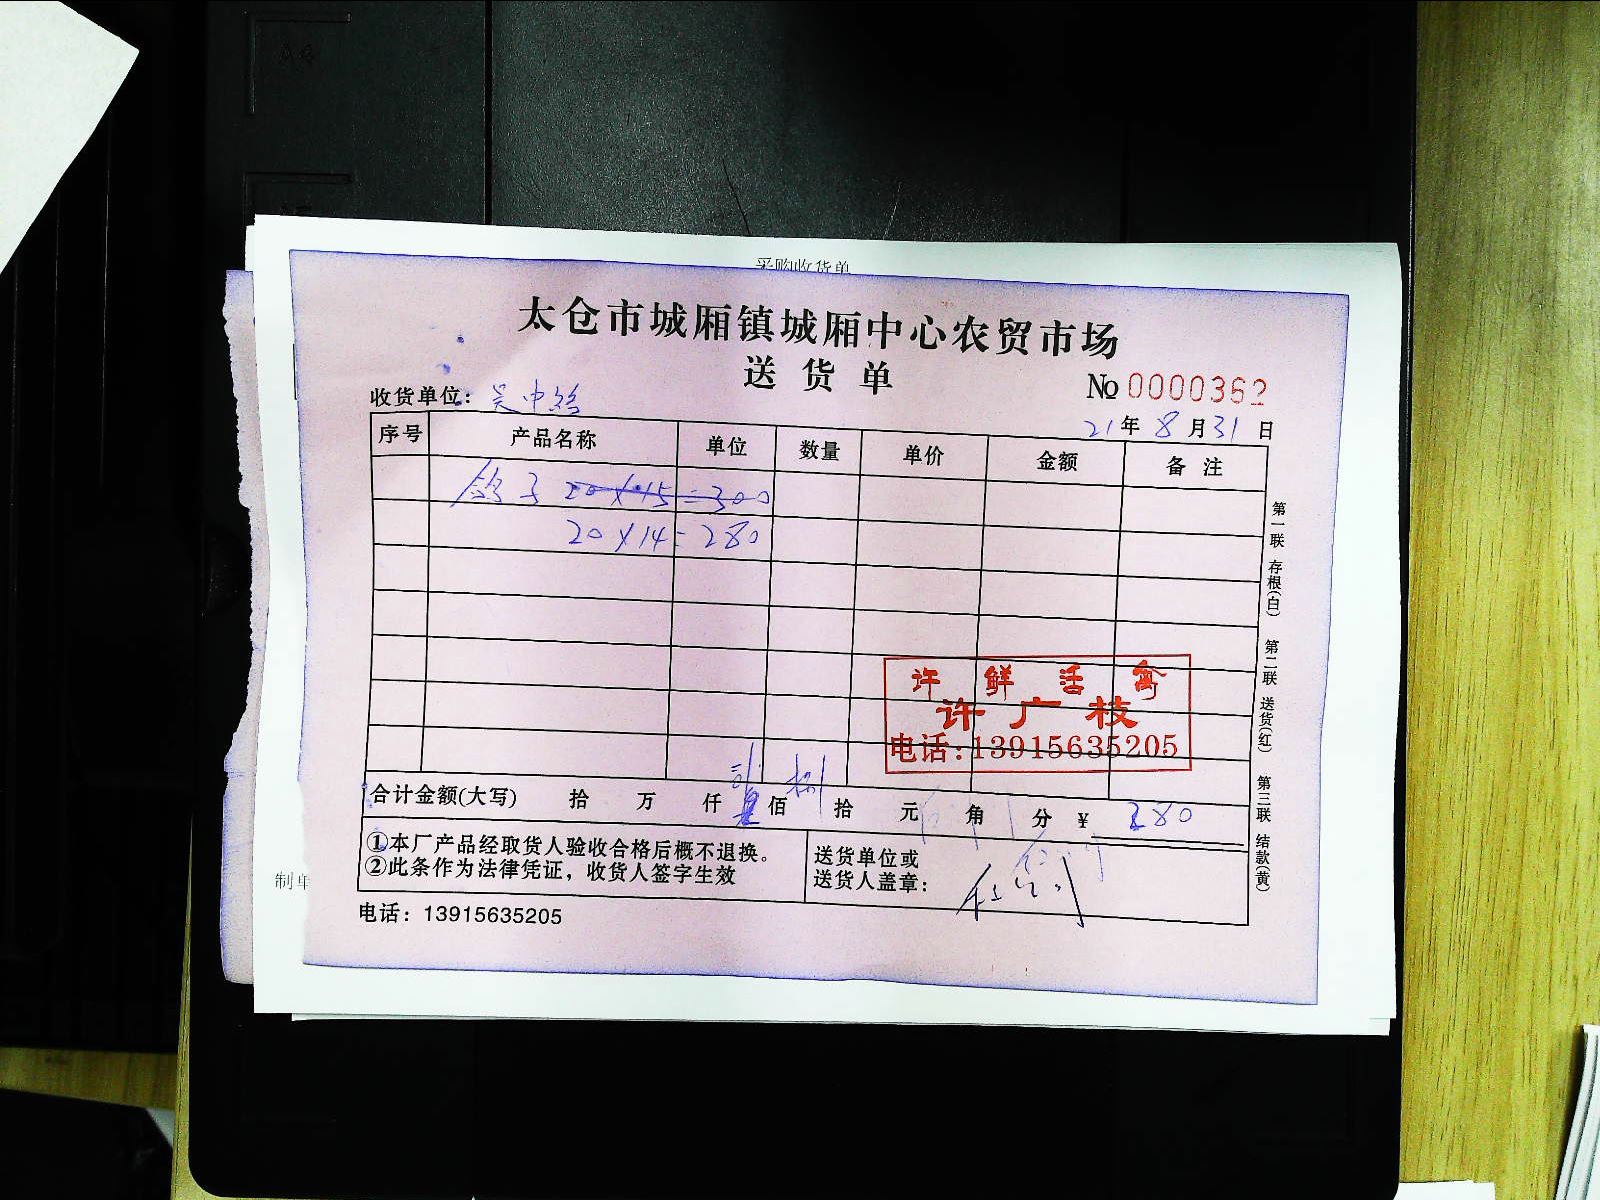 采购收货单
太仓市城厢镇城厢中心农贸市场
送货单
No 0000362
收货单位: 吴中
21年8月31日
序号 产品名称 单位 数量 单价 金额 备注
鸽子 20×15=300
20×14=280
许鲜活禽
许广枝
电话:13915635205
合计金额(大写) 拾 万 仟 贰佰 捌拾 元 角 分 ¥ 280
①本厂产品经取货人验收合格后概不退换。
②此条作为法律凭证，收货人签字生效
送货单位或
送货人盖章:
电话: 13915635205
第一联 存根(白) 第二联 送货(红) 第三联 结款(黄)
制单